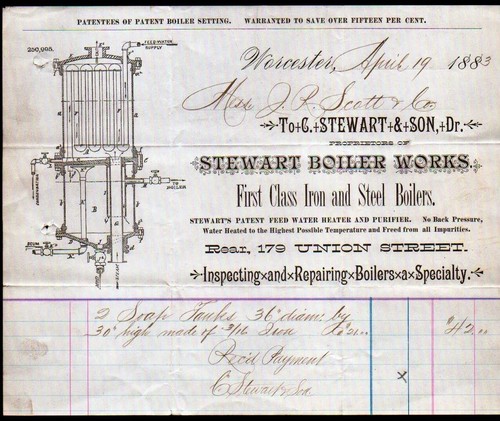 PATENTEES OF PATENT BOILER SETTING. WARRANTED TO SAVE OVER FIFTEEN PER CENT.
250,005.
FEED-WATER
SUPPLY
Worcester, April 19 1883
Mess J. P. Scott & Co
To C. STEWART & SON, Dr.
PROPRIETORS OF
STEWART BOILER WORKS.
TO
BOILER
First Class Iron and Steel Boilers.
STEWART'S PATENT FEED WATER HEATER AND PURIFIER. No Back Pressure,
Water Heated to the Highest Possible Temperature and Freed from all Impurities.
Rear, 179 UNION STREET.
STEAM
Inspecting and Repairing Boilers a Specialty.
2 Soap Tanks 36" diam. by
30" high made of 3/16 Iron 21.00 $42.00
Rec'd Payment
x
C Stewart & Son